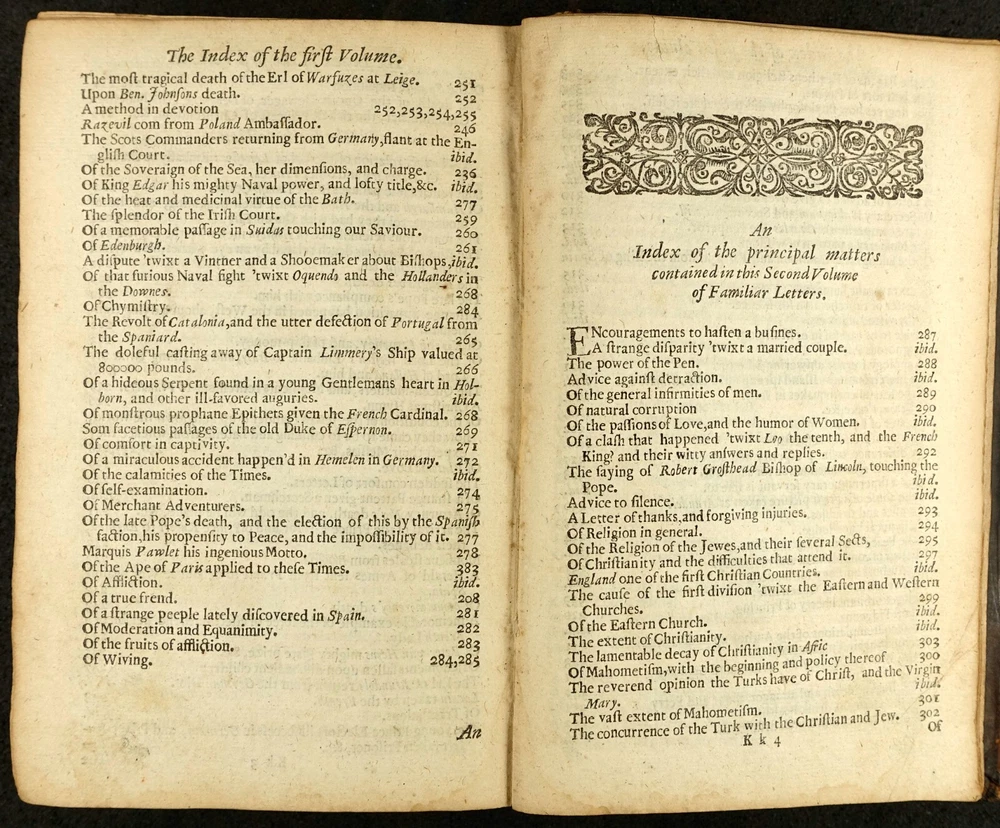 The Index of the firſt Volume.
The moſt tragical death of the Erl of Warfuzes at Leige. 251
Upon Ben. Johnſons death. 252
A method in devotion 252,253,254,255
Razevil com from Poland Ambaſſador. 246
The Scots Commanders returning from Germany,flant at the En-
gliſh Court. ibid.
Of the Soveraign of the Sea, her dimenſions, and charge. 236
Of King Edgar his mighty Naval power, and lofty title,&c. ibid.
Of the heat and medicinal virtue of the Bath. 277
The ſplendor of the Iriſh Court. 259
Of a memorable paſſage in Suidas touching our Saviour. 260
Of Edenburgh. 261
A diſpute 'twixt a Vintner and a Shooemaker about Biſhops,ibid.
Of that furious Naval fight 'twixt Oquendo and the Hollanders in
the Downes. 268
Of Chymiſtry. 284
The Revolt of Catalonia,and the utter defection of Portugal from
the Spaniard. 265
The doleful caſting away of Captain Limmery's Ship valued at
800000 pounds. 266
Of a hideous Serpent found in a young Gentlemans heart in Hol-
born, and other ill-favored auguries. ibid.
Of monſtrous prophane Epithets given the French Cardinal. 268
Som facetious paſſages of the old Duke of Eſpernon. 269
Of comfort in captivity. 271
Of a miraculous accident happen'd in Hemelen in Germany. 272
Of the calamities of the Times. ibid.
Of ſelf-examination. 274
Of Merchant Adventurers. 275
Of the late Pope's death, and the election of this by the Spaniſh
faction,his propenſity to Peace, and the impoſſibility of it. 277
Marquis Pawlet his ingenious Motto. 278
Of the Ape of Paris applied to theſe Times. 383
Of Affliction. ibid.
Of a true frend. 208
Of a ſtrange peeple lately diſcovered in Spain. 281
Of Moderation and Equanimity. 282
Of the fruits of affliction. 283
Of Wiving. 284,285
An
An
Index of the principal matters
contained in this Second Volume
of Familiar Letters.
ENcouragements to haſten a buſines. 287
A ſtrange diſparity 'twixt a married couple. ibid.
The power of the Pen. 288
Advice againſt detraction. ibid.
Of the general infirmities of men. 289
Of natural corruption 290
Of the paſſions of Love,and the humor of Women. ibid.
Of a claſh that happened 'twixt Leo the tenth, and the French
King? and their witty anſwers and replies. 292
The ſaying of Robert Groſthead Biſhop of Lincoln, touching the
Pope. ibid.
Advice to ſilence. ibid.
A Letter of thanks,and forgiving injuries. 293
Of Religion in general. 294
Of the Religion of the Jewes,and their ſeveral Sects, 295
Of Chriſtianity and the difficulties that attend it. 297
England one of the firſt Chriſtian Countries. ibid.
The cauſe of the firſt diviſion 'twixt the Eaſtern and Weſtern
Churches. 299
Of the Eaſtern Church. ibid.
The extent of Chriſtianity. ibid.
The lamentable decay of Chriſtianity in Afric 303
Of Mahometiſm,with the beginning and policy thereof 300
The reverend opinion the Turks have of Chriſt, and the Virgin
Mary. ibid.
The vaſt extent of Mahometiſm. 301
The concurrence of the Turk with the Chriſtian and Jew. 302
K k 4 Of